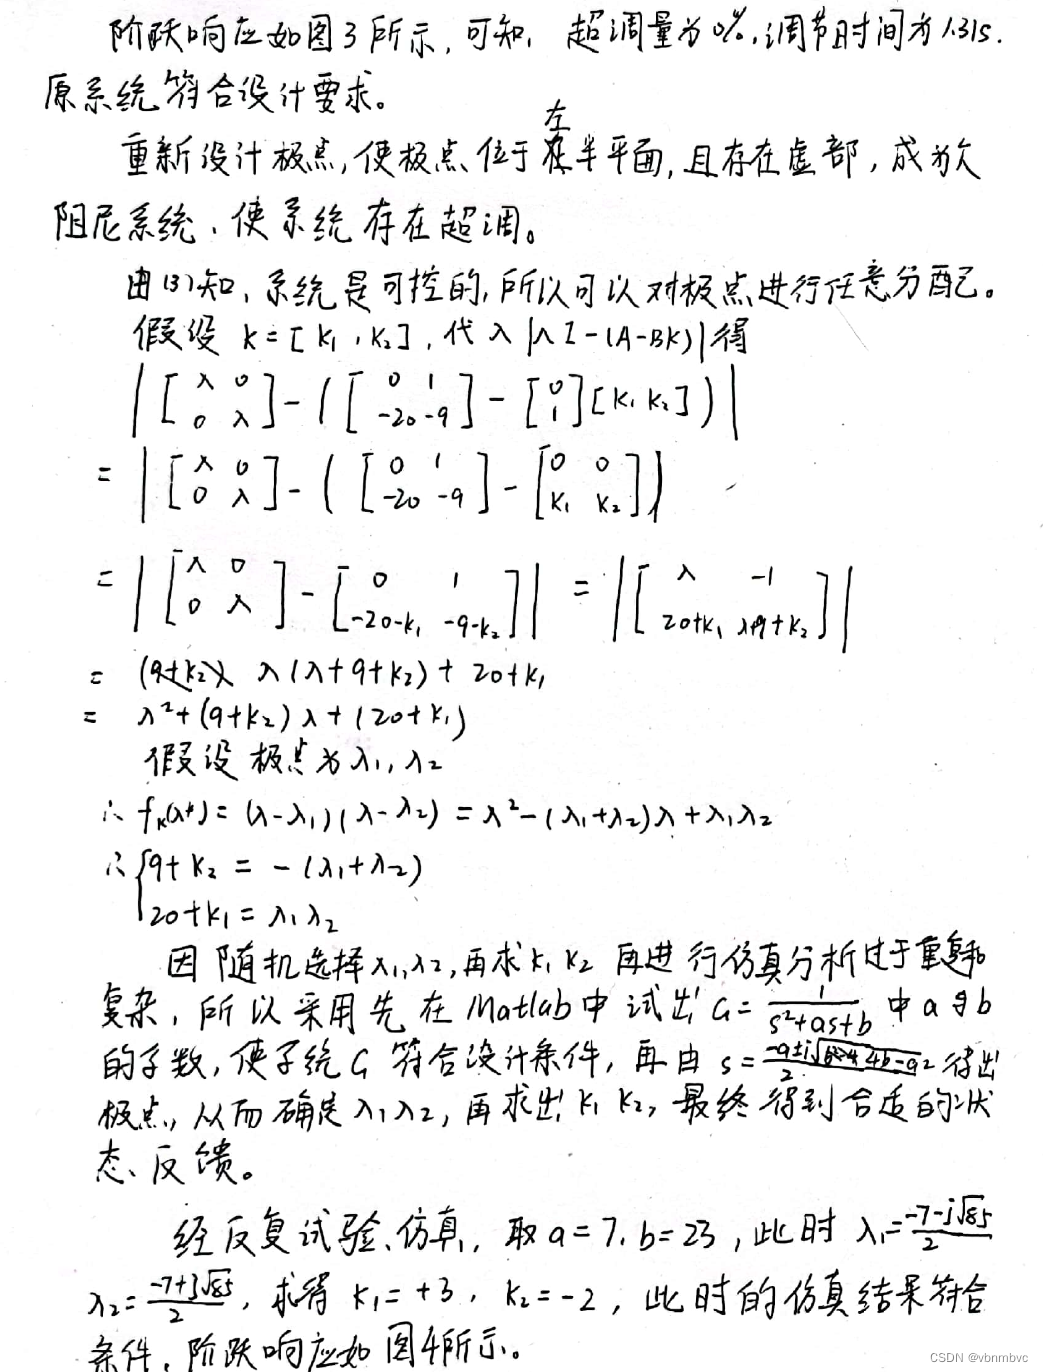 阶跃响应如图3所示,可知,超调量为0%,调节时间为1.31s.
原系统符合设计要求。
左
重新设计极点,使极点位于半平面,且存在虚部,成为欠
阻尼系统,使系统存在超调。
由(3)知,系统是可控的,所以可以对极点进行任意分配。
假设 K=[K₁,K₂],代入|λI-(A-BK)|得
|[λ 0; 0 λ]-([0 1; -20 -9]-[0; 1][K₁ K₂])|
=|[λ 0; 0 λ]-([0 1; -20 -9]-[0 0; K₁ K₂])|
=|[λ 0; 0 λ]-[0 1; -20-K₁ -9-K₂]|=|[λ -1; 20+K₁ λ+9+K₂]|
= λ(λ+9+K₂)+20+K₁
= λ²+(9+K₂)λ+(20+K₁)
假设极点为λ₁,λ₂
∴ fₖ(λ*)=(λ-λ₁)(λ-λ₂)=λ²-(λ₁+λ₂)λ+λ₁λ₂
∴ {9+K₂=-(λ₁+λ₂)
20+K₁=λ₁λ₂
因随机选择λ₁,λ₂,再求K₁K₂再进行仿真分析过于重复和
复杂,所以采用先在Matlab中试出G=1/(s²+as+b)中a与b
的子数,使子统G符合设计条件,再由s=(-a±j√(4b-a²))/2得出
极点,从而确定λ₁λ₂,再求出K₁K₂,最终得到合适的状
态反馈。
经反复试验、仿真,取a=7,b=23,此时λ₁=(-7-j√85)/2
λ₂=(-7+j√85)/2,求得K₁=+3,K₂=-2,此时的仿真结果符合
条件,阶跃响应如图4所示。
CSDN @vbnmbvc